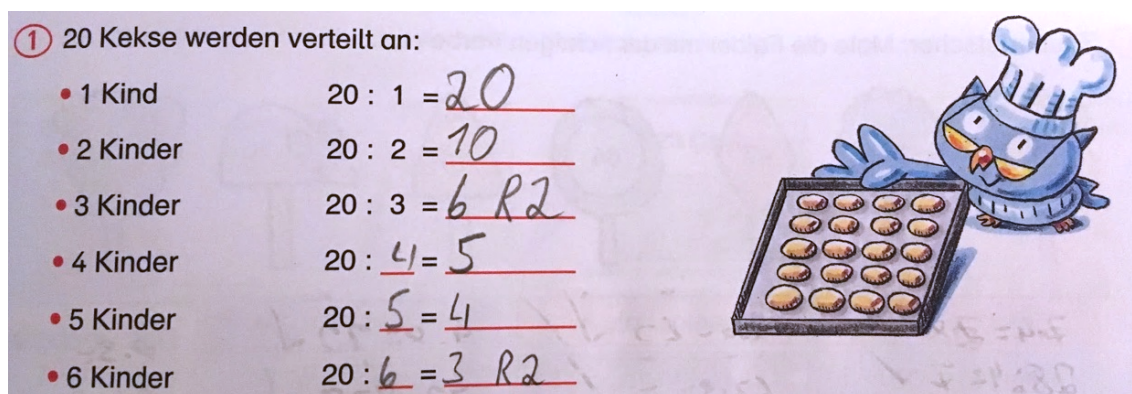 1 20 Kekse werden verteilt an:
• 1 Kind 20 : 1 = 20
• 2 Kinder 20 : 2 = 10
• 3 Kinder 20 : 3 = 6 R2
• 4 Kinder 20 : 4 = 5
• 5 Kinder 20 : 5 = 4
• 6 Kinder 20 : 6 = 3 R2